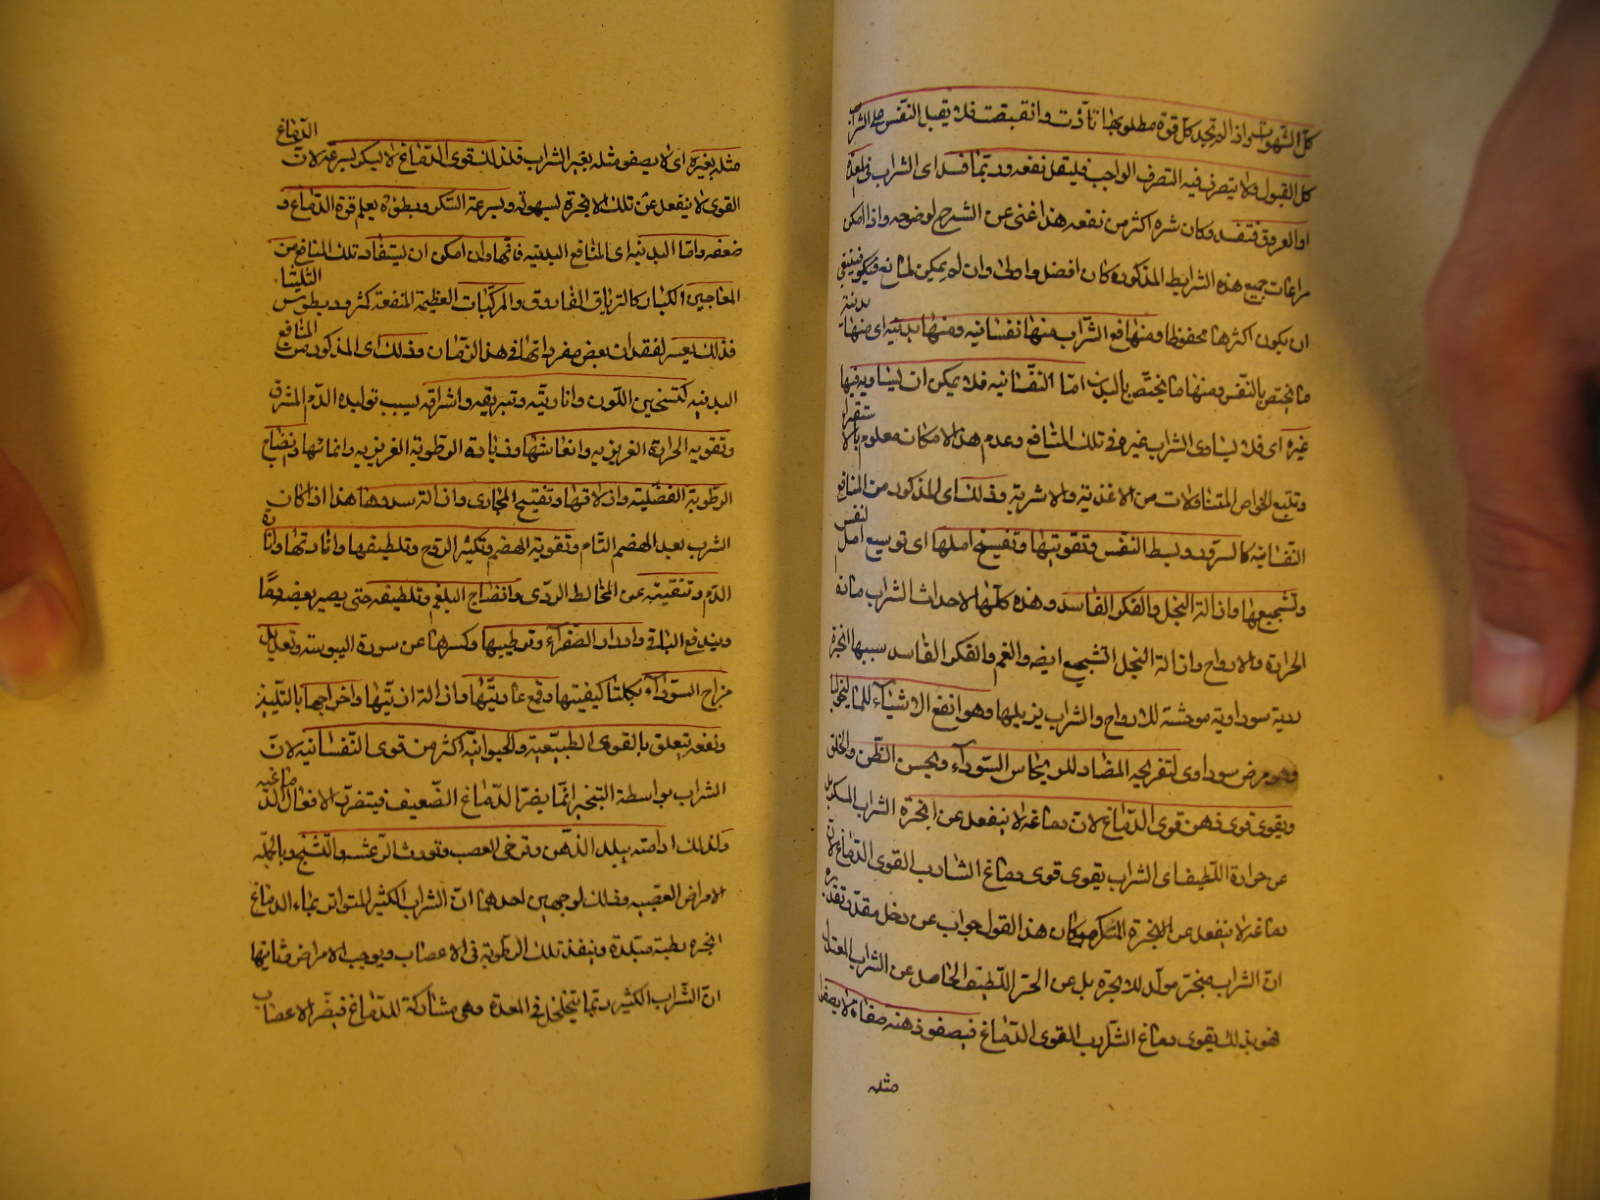 كل الشهوات واذا لم تجد كل قوة مطلوبها تأذت وانقبضت فلا يقبل النفس على الشراب
كل القبول ولا يتصرف فيه التصرف الواجب فليقل نفعه وربما فسد اى الشراب فى المعدة
او العروق فتفسد وكان شره اكثر من نفعه هذا غنى عن الشرح لوضوحه واذا امكن
مراعات جميع هذه الشرايط المذكورة كان افضل واولى وان لم يمكن لمانع فينبغى
ان يكون اكثرها محفوظا ومنافع الشراب منها نفسانيه ومنها بدنيه اى منها
ما يختص بالنفس ومنها ما يختص بالبدن اما النفسانيه فلا يمكن ان يساويه فيها
غيره اى فلا يساوى الشراب غيره فى تلك المنافع وعدم هذا الامكان معلوم بالاستقراء
وتتبع الخواص المتناولات من الاغذية والاشربة وذلك اى المذكور من المنافع
النفسانيه كالسرور وبسط النفس وتقويتها وتفسيح املها اى توسيع امل النفس
وتشجيعها وازالة البخل والفكر الفاسد وهذه كلها لاحداث الشراب مادة
الحرارة والارواح وازالة البخل التشجيع ايضه والغم والفكر الفاسد سببها ابخرة
ردية سوداوية موحشة للارواح والشراب يزيلها وهو انفع الاشياء للماليخوليا
وهو مرض سوداوى لتفريحه المضاد للايحاش السوداء ويحسن الظن والخلق
ويقوى قوى ذهن قوى الدماغ لان دماغه لا ينفعل عن ابخرة الشراب المسكر بل
عن حرارة اللطيف اى الشراب يقوى قوى دماغ الشارب القوى الدماغ لان
دماغه لا ينفعل عن الابخرة المسكرة وكان هذا القول جواب عن دخل مقدر تقديره
ان الشراب مبخر مولد للابخرة بل عن الحر اللطيف الحاصل عن الشراب المعتدل
فهو بذلك يقوى دماغ الشارب القوى الدماغ فيصفو ذهنه صفاء لا يصفو
مثله
مثله بغيره اى لا يصفو مثله بغير الشراب فلذلك قوى الدماغ لا يسكر بسرعة لان الدماغ
القوى لا ينفعل عن تلك الابخرة لسهولة وبسرعة السكر وبطؤه يعلم قوة الدماغ و
ضعفه واما البدنيه اى المنافع البدنيه فانها وان امكن ان يستفاد تلك المنافع من
المعاجين الكبار كالترياق الفاروق والمركبات العظيمة المنفعة كثروديطوس الثليثا
فذلك يعسر لفقدان بعض مفرداتها فى هذا الزمان وذلك اى المذكور من المنافع
البدنيه كتحسين اللون وانارته وتبريقه واشراقه بسبب توليده الدم المشرق
وتقويه الحرارة الغريزيه وانعاشها وزيادة الرطوبة الغريزيه وانمائها وانضاج
الرطوبة الفضليه وازلاقها وتفتيح المجارى وازالة سددها هذا اذا كان
الشرب بعد الهضم التام وتقوية الهضم وتكثير الروح وتلطيفها وانارتها وانارة
الدم وتنقيته عن المخالط الردى وانضاج البلغم وتلطيفه حتى يصير بعضه دما
ويندفع الباقى وادرار الصفراء وترطيبها وكسرها عن سورة اليبوسة وتعديل
مزاج السوداء بكلتا كيفيتها وقمع عاديتها وازالة اذيتها واخراجها بالتليين
ونفعه يتعلق بالقوى الطبيعية والحيوانيه اكثر من قوى النفسانيه لان
الشراب بواسطة التبخير انما يضر الدماغ الضعيف فيتضرر الافعال الدماغيه
ولذلك ادامته يبلد الذهن وترخى العصب وتورث الرعشه والتشنج وبالجمله
الامراض العصبيه وذلك لوجهين احدهما ان الشراب الكثير المتواتر يملء الدماغ
ابخره رطبة مبلدة وينفذ تلك الرطوبة فى الاعصاب ويوجب الامراض وثانيها
ان الشراب الكثير ربما يتخلل فى المعدة وهى مشاركة للدماغ فيضر الاعصاب